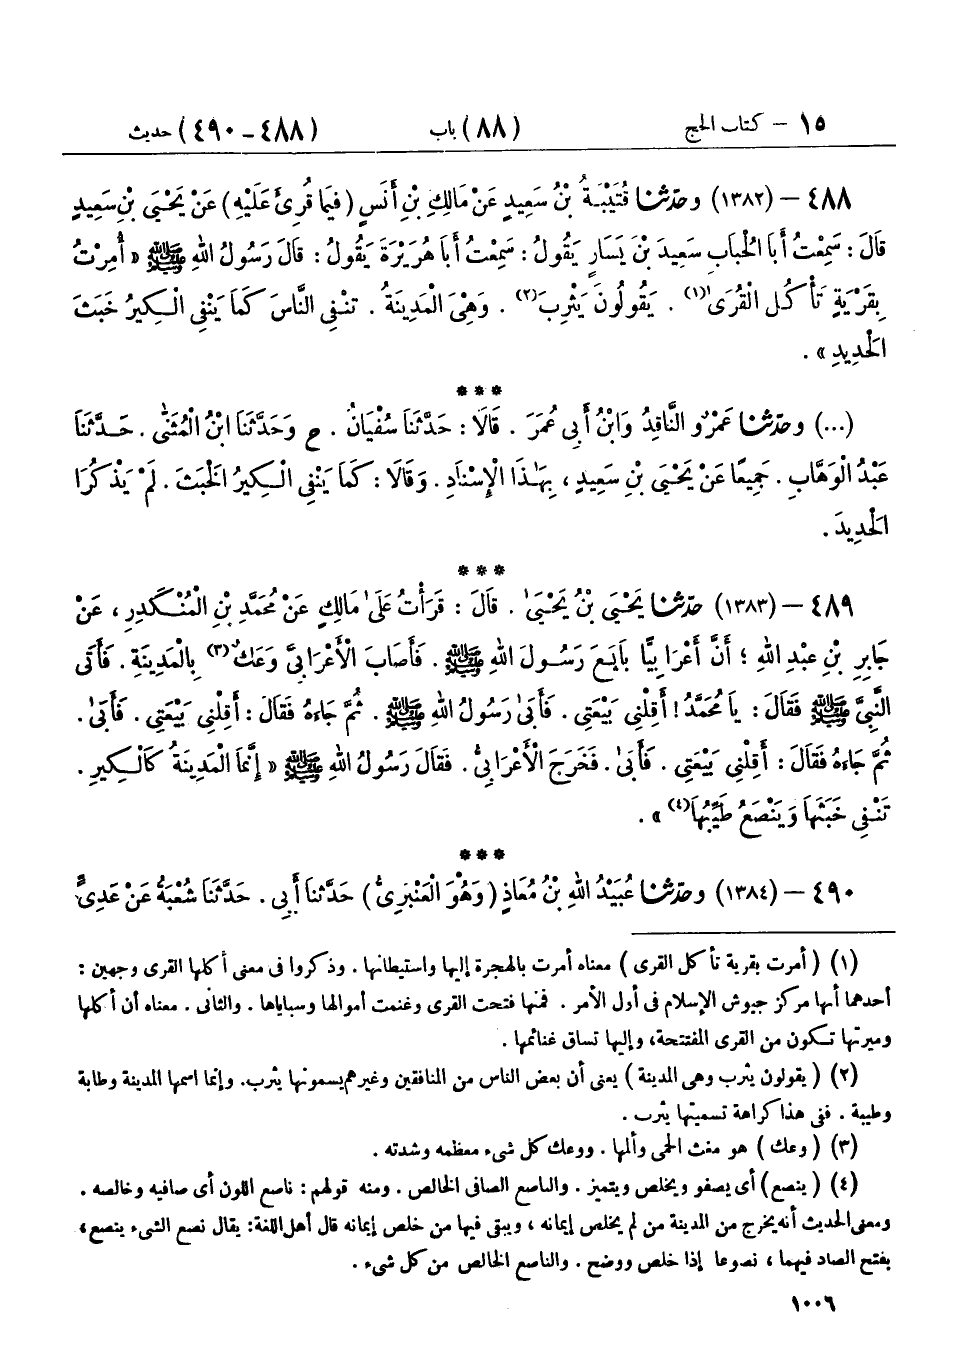 ١٥ – كتاب الحج (٨٨) باب (٤٨٨–٤٩٠) حديث
٤٨٨ – (١٣٨٢) وحَدَّثَنَا قُتَيْبَةُ بْنُ سَعِيدٍ عَنْ مَالِكِ بْنِ أَنَسٍ (فِيمَا قُرِئَ عَلَيْهِ) عَنْ يَحْيَى بْنِ سَعِيدٍ
قَالَ : سَمِعْتُ أَبَا الْحُبَابِ سَعِيدَ بْنَ يَسَارٍ يَقُولُ : سَمِعْتُ أَبَا هُرَيْرَةَ يَقُولُ : قَالَ رَسُولُ اللهِ ﷺ « أُمِرْتُ
بِقَرْيَةٍ تَأْكُلُ الْقُرَىٰ(١) . يَقُولُونَ يَثْرِبَ(٢) . وَهِيَ الْمَدِينَةُ . تَنْفِي النَّاسَ كَمَا يَنْفِي الْكِيرُ خَبَثَ
الْحَدِيدِ » .
***
(...) وحَدَّثَنَا عَمْرٌو النَّاقِدُ وَابْنُ أَبِي عُمَرَ . قَالَا : حَدَّثَنَا سُفْيَانُ . ح وَحَدَّثَنَا ابْنُ الْمُثَنَّى . حَدَّثَنَا
عَبْدُ الْوَهَّابِ . جَمِيعًا عَنْ يَحْيَى بْنِ سَعِيدٍ ، بِهَٰذَا الْإِسْنَادِ . وَقَالَا : كَمَا يَنْفِي الْكِيرُ الْخَبَثَ . لَمْ يَذْكُرَا
الْحَدِيدَ .
***
٤٨٩ – (١٣٨٣) حَدَّثَنَا يَحْيَىٰ بْنُ يَحْيَىٰ . قَالَ : قَرَأْتُ عَلَىٰ مَالِكٍ عَنْ مُحَمَّدِ بْنِ الْمُنْكَدِرِ ، عَنْ
جَابِرِ بْنِ عَبْدِ اللهِ ؛ أَنَّ أَعْرَابِيًّا بَايَعَ رَسُولَ اللهِ ﷺ . فَأَصَابَ الْأَعْرَابِيَّ وَعَكٌ(٣) بِالْمَدِينَةِ . فَأَتَى
النَّبِيَّ ﷺ فَقَالَ : يَا مُحَمَّدُ ! أَقِلْنِي بَيْعَتِي . فَأَبَىٰ رَسُولُ اللهِ ﷺ . ثُمَّ جَاءَهُ فَقَالَ : أَقِلْنِي بَيْعَتِي . فَأَبَىٰ .
ثُمَّ جَاءَهُ فَقَالَ : أَقِلْنِي بَيْعَتِي . فَأَبَىٰ . فَخَرَجَ الْأَعْرَابِيُّ . فَقَالَ رَسُولُ اللهِ ﷺ « إِنَّمَا الْمَدِينَةُ كَالْكِيرِ .
تَنْفِي خَبَثَهَا وَيَنْصَعُ طَيِّبُهَا(٤) » .
***
٤٩٠ – (١٣٨٤) وحَدَّثَنَا عُبَيْدُ اللهِ بْنُ مُعَاذٍ (وَهُوَ الْعَنْبَرِيُّ) حَدَّثَنَا أَبِي . حَدَّثَنَا شُعْبَةُ عَنْ عَدِيٍّ
(١) ( أمرت بقرية تأكل القرى ) معناه أمرت بالهجرة إليها واستيطانها . وذكروا فى معنى أكلها القرى وجهين :
أحدهما أنها مركز جيوش الإسلام فى أول الأمر . فمنها فتحت القرى وغنمت أموالها وسباياها . والثانى . معناه أن أكلها
وميرتها تكون من القرى المفتتحة، وإليها تساق غنائمها .
(٢) ( يقولون يثرب وهى المدينة ) يعنى أن بعض الناس من المنافقين وغيرهم يسمونها يثرب. وإنما اسمها المدينة وطابة
وطيبة . ففى هذا كراهة تسميتها يثرب .
(٣) ( وعك ) هو مغث الحمى وألمها . ووعك كل شىء معظمه وشدته .
(٤) ( ينصع) أى يصفو ويخلص ويتميز . والناصع الصافى الخالص . ومنه قولهم : ناصع اللون أى صافيه وخالصه .
ومعنى الحديث أنه يخرج من المدينة من لم يخلص إيمانه ، ويبقى فيها من خلص إيمانه قال أهل اللغة: يقال نصع الشىء ينصع،
بفتح الصاد فيهما ، نصوعا إذا خلص ووضح . والناصع الخالص من كل شىء .
١٠٠٦